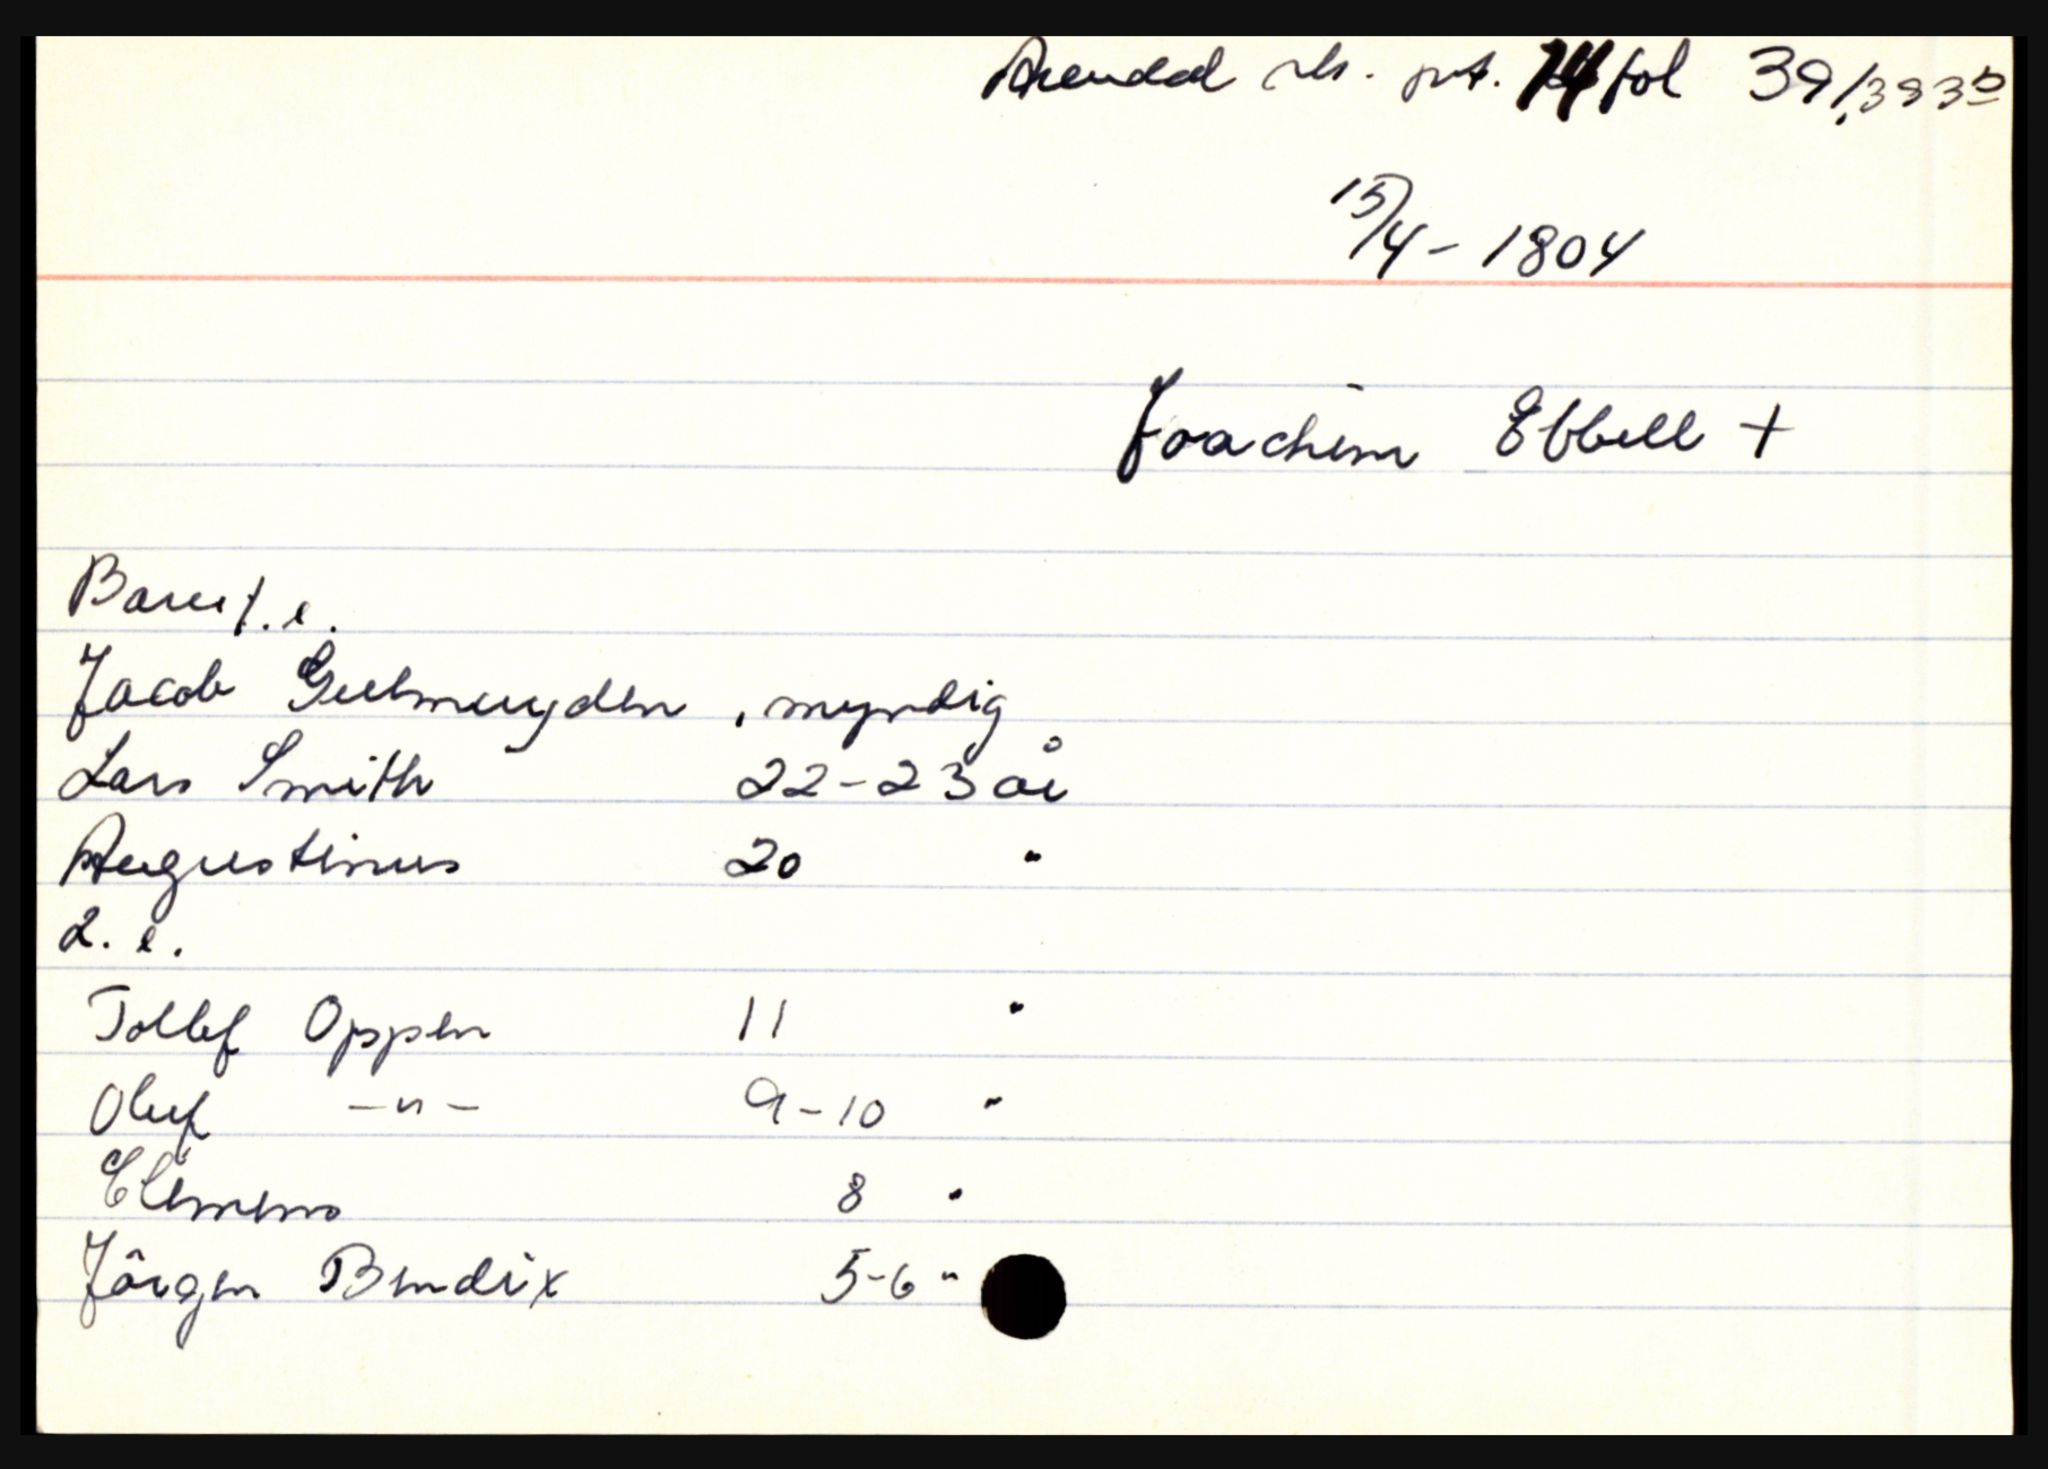 Arendal sk. prt. 14 fol 39, 393b
15/4 - 1804
Joachim Ebbell +
Barn 1. e.
Jacob Geelmuyden, myndig
Lars Smith 22-23 år
Augustinus 20 "
2. e.
Tollef Oppen 11 "
Oluf -"- 9-10 "
Clemens 8 "
Jörgen Bendix 5-6 "